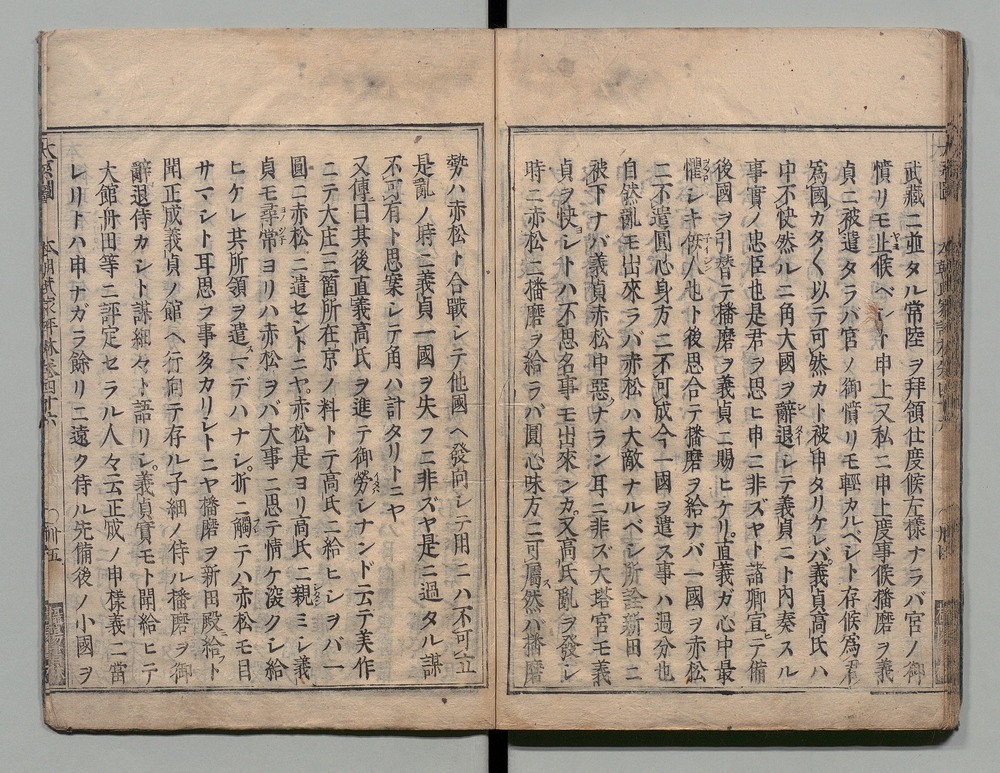 武藏ニ並タル常陸ヲ拜領仕度候左樣ナラバ官ノ御
憤リモ止候ベシト申上又私ニ申上度事候播磨ヲ義
貞ニ被遣タラバ官ノ御憤リモ輕カルベシト存候為君
為國カタ〱以テ可然カト被申タリケレバ義貞高氏ハ
中不快然ルニ角大國ヲ辭退シテ義貞ニト内奏スル
事實ノ忠臣也是君ヲ思ヒ申ニ非ズヤト諸卿宣テ備
後國ヲ引替テ播磨ヲ義貞ニ賜ヒケリ直義ガ心中最
懼シキ佞人也ト後思合テ播磨ヲ給ナバ一國ヲ赤松
ニ不遣圓心身方ニ不可成今一國ヲ遣ス事ハ過分也
自然亂モ出來ラバ赤松ハ大敵ナルベシ所詮新田ニ
被下ナバ義貞赤松中惡ナラン耳ニ非ズ大塔宮モ義
貞ヲ快シトハ不思名事モ出來ンカ又高氏亂ヲ發シ
時ニ赤松ニ播磨ヲ給ラバ圓心味方ニ可屬然バ播磨
勢ハ赤松ト合戰シテ他國ヘ發向シテ用ニハ不可立
是亂ノ時ニ義貞一國ヲ失フニ非ズヤ是ニ過タル謀
不可有ト思案シテ角ハ計タリトニヤ
又傳曰其後直義高氏ヲ進テ御勞シナンドニ云テ美作
ニテ大庄二箇所在京ノ料トテ高氏ニ給ヒシヲバ一
圓ニ赤松ニ遣セシトニヤ赤松是ヨリ高氏ニ親ミシ義
貞モ尋常ヨリハ赤松ヲバ大事ニ思テ情ケ深クシ給
ヒケレ其所領ヲ遣スマデハナシ折ニ觸テハ赤松モ目
サマシト耳思フ事多カリシトニヤ播磨ヲ新田殿給フト
聞正成義貞ノ館ヘ行向テ存ル子細ノ侍ル播磨ヲ御
辭退侍カシト謀細々ト語リシ義貞實モト聞給ヒテ
大館舟田等ニ評定セラル人々云正成ノ申樣義ニ當
レリトハ申ナガラ餘リニ遠ク侍ル先備後ノ小國ヲ